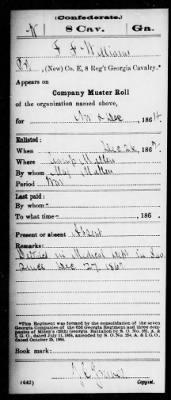 (Confederate.)
W 8 Cav. Ga.
Williams
(New) Co. E, 8 Reg't Georgia Cavalry.*
Appears on
Company Muster Roll
of the organization named above,
for Nov & Dec, 1864
Enlisted:
When Dec 26, 186
Where Camp Mallen
By whom Maj. Mallen
Period War
Last paid:
By whom
To what time , 186 .
Present or absent Absent
Remarks:
Detailed in Medical dept in
since Dec 27, 186
*This Regiment was formed by the consolidation of the seven
Georgia Companies of the 62d Georgia Regiment and three companies
of Georgia Battalion by S. O. No. 161, A. & I. G. O.,
dated July 11, 1864, amended by S. O. No. A. & I. G. O.,
dated October 1864.
Book mark:
(642) Copyist.